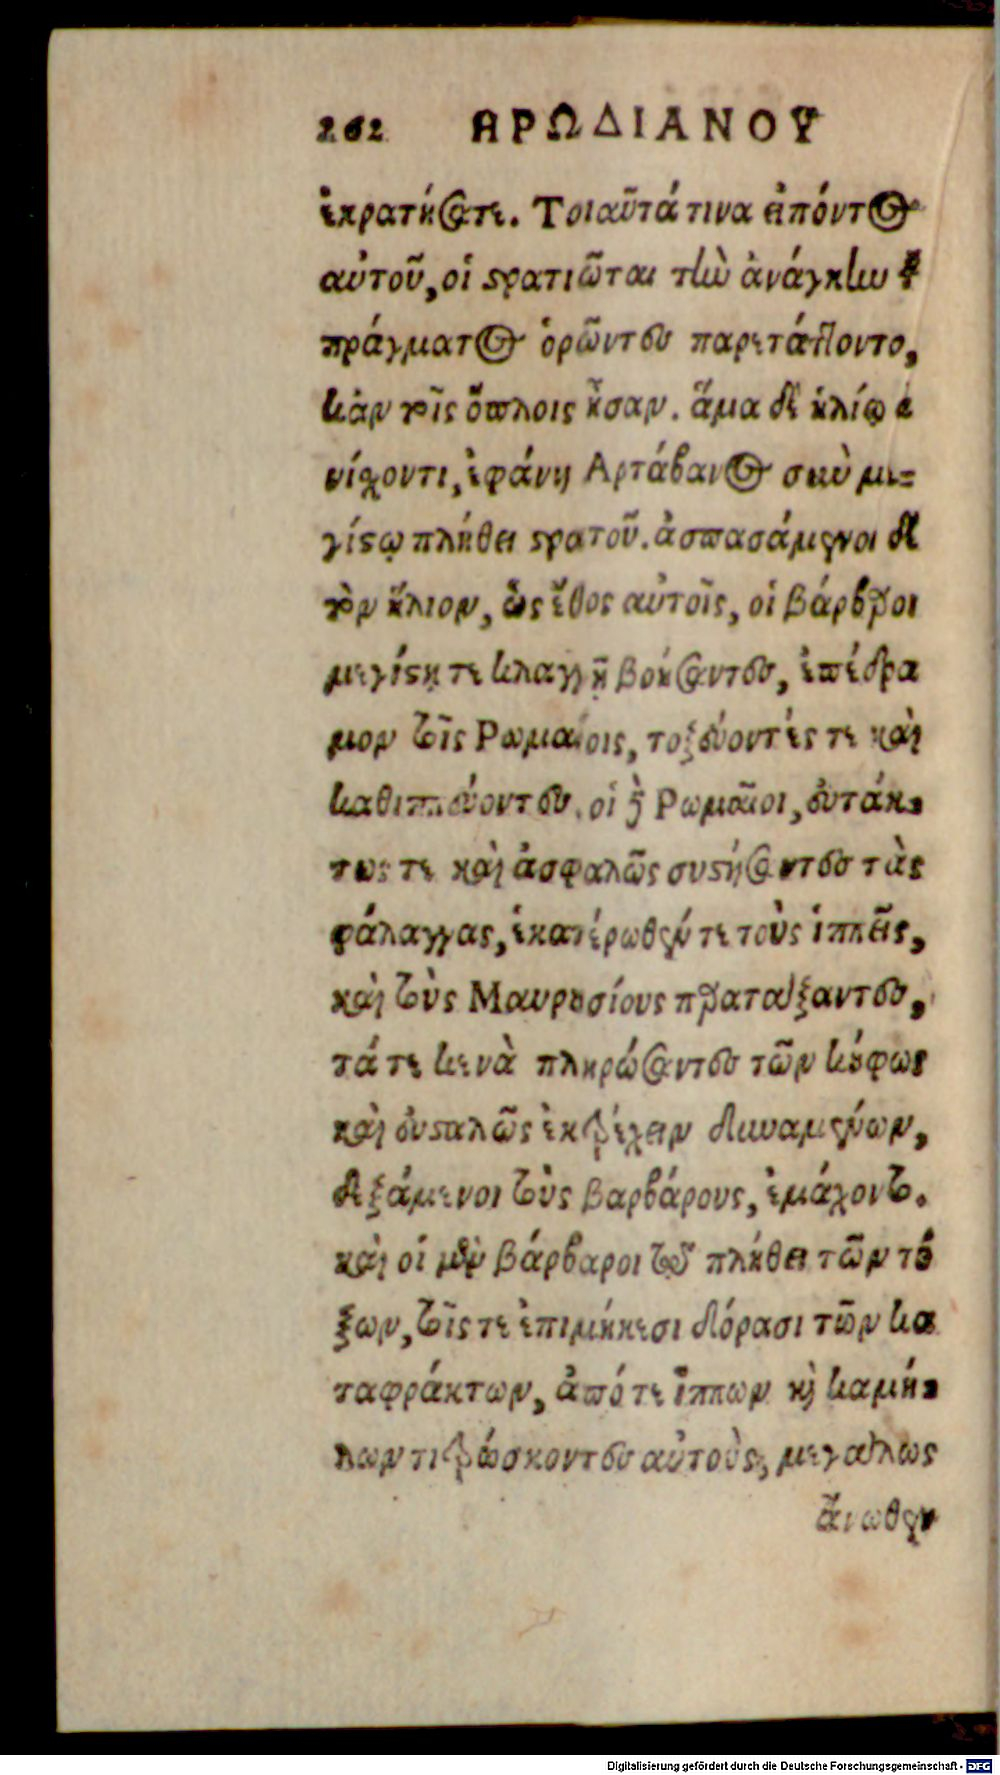 262 ΗΡΩΔΙΑΝΟΥ
ἐκρατήσατε. Τοιαῦτά τινα εἰπόντος
αὐτοῦ, οἱ στρατιῶται τὴν ἀνάγκην τοῦ
πράγματος ὁρῶντες παρετάττοντο,
κἀν τοῖς ὅπλοις ἦσαν. ἅμα δὲ ἡλίῳ ἀ
νίσχοντι, ἐφάνη Αρτάβανος σὺν με-
γίστῳ πλήθει στρατοῦ. ἀσπασάμενοι δὲ
τὸν ἥλιον, ὡς ἔθος αὐτοῖς, οἱ βάρβαροι
μεγίστῃ τε κλαγγῇ βοήσαντες, ἐπέδρα
μον τοῖς Ρωμαίοις, τοξεύοντές τε καὶ
καθιππεύοντες. οἱ δὲ Ρωμαῖοι, εὐτάκ-
τως τε καὶ ἀσφαλῶς συστήσαντες τὰς
φάλαγγας, ἑκατέρωθέν τε τοὺς ἱππεῖς,
καὶ τοὺς Μαυρουσίους παρατάξαντες,
τά τε κενὰ πληρώσαντες τῶν κούφως
καὶ εὐσταλῶς ἐκτρέχειν δυναμένων,
δεξάμενοι τοὺς βαρβάρους, ἐμάχοντο.
καὶ οἱ μὲν βάρβαροι τῷ πλήθει τῶν τό
ξων, τοῖς τε ἐπιμήκεσι δόρασι τῶν κα
ταφράκτων, ἀπό τε ἵππων καὶ καμή-
λων τιτρώσκοντες αὐτοὺς, μεγάλως
ἄνωθεν
Digitalisierung gefördert durch die Deutsche Forschungsgemeinschaft - DFG